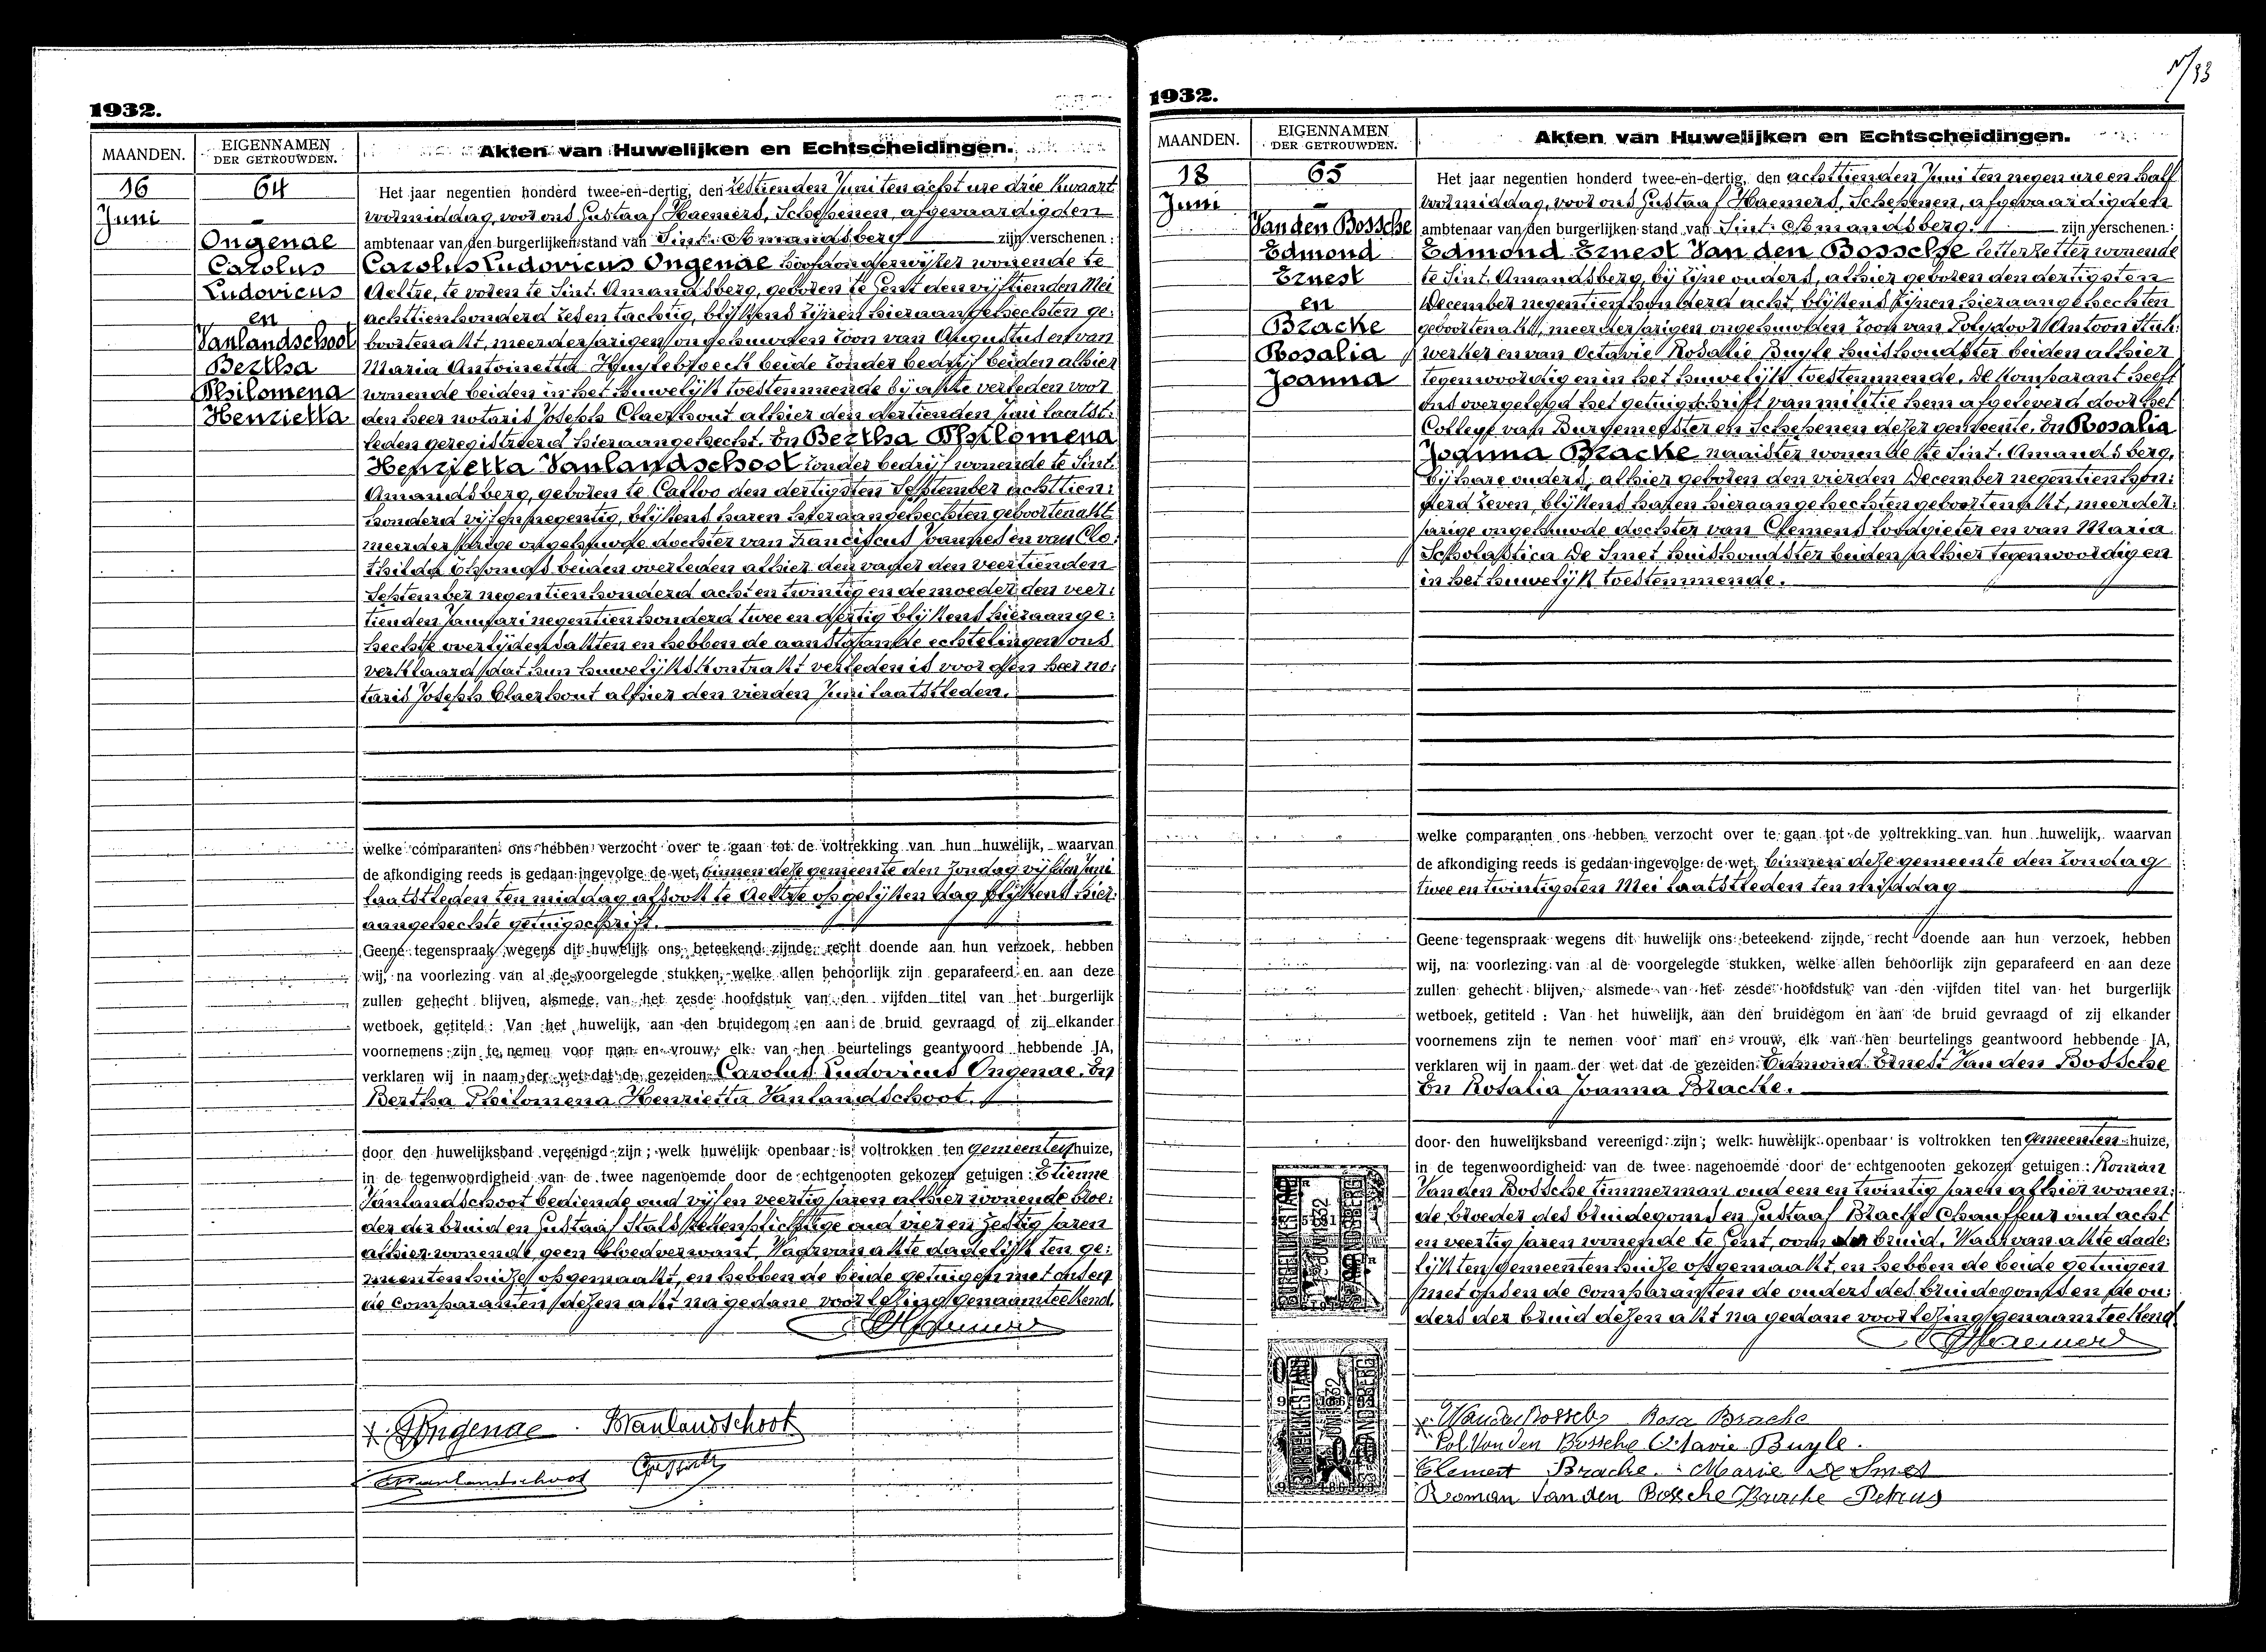 1932.
MAANDEN.
EIGENNAMEN
DER GETROUWDEN.
Akten van Huwelijken en Echtscheidingen.
16
Juni
64
Ongenae
Carolus
Ludovicus
en
Vanlandschoot
Bertha
Philomena
Henrietta
Het jaar negentien honderd twee-en-dertig, den zestienden Juni ten acht ure drie kwaart
voormiddag, voor ons Gustaaf Haemers, Schepenen, afgevaardigden
ambtenaar van den burgerlijken stand van Sint-Amandsberg zijn verschenen:
Carolus Ludovicus Ongenae hoofdonderwijzer wonende te
Aeltre, te voren te Sint-Amandsberg, geboren te Gent den vijftienden Mei
achttienhonderd zes en tachtig, blijkens zijnen hieraangehechten ge:
boortenakt, meerderjarigen ongehuwden zoon van Augustus en van
Maria Antoinetta Huylebroeck beide zonder bedrijf beiden alhier
wonende beiden in het huwelijk toestemmende bij akte verleden voor
den heer notaris Joseph Claerhout alhier den dertienden Juni laatst:
leden geregistreerd hieraangehecht. En Bertha Philomena
Henrietta Vanlandschoot zonder bedrijf wonende te Sint-
Amandsberg, geboren te Calloo den dertigsten September achttien:
honderd vijf en negentig, blijkens haren hieraangehechten geboortenakt
meerderjarige ongehuwde dochter van Franciscus Joannes en van Clo:
thilda Thomas beiden overleden alhier den vader den veertienden
September negentienhonderd acht en twintig en de moeder den veer:
tienden Januari negentienhonderd twee en dertig blijkens hieraange:
hechte overlijdensakten en hebben de aanstaande echtelingen ons
verklaard dat hun huwelijkskontrakt verleden is voor den heer no:
taris Joseph Claerhout alhier den vierden Juni laatstleden.
welke comparanten ons hebben verzocht over te gaan tot de voltrekking van hun huwelijk, waarvan
de afkondiging reeds is gedaan ingevolge de wet, binnen deze gemeente den Zondag vijfden Juni
laatstleden ten middag alsook te Aeltre op gelijken dag blijkens hier:
aangehechte getuigschrift.
Geene tegenspraak wegens dit huwelijk ons beteekend zijnde, recht doende aan hun verzoek, hebben
wij, na voorlezing van al de voorgelegde stukken, welke allen behoorlijk zijn geparafeerd en aan deze
zullen gehecht blijven, alsmede van het zesde hoofdstuk van den vijfden titel van het burgerlijk
wetboek, getiteld: Van het huwelijk, aan den bruidegom en aan de bruid gevraagd of zij elkander
voornemens zijn te nemen voor man en vrouw, elk van hen beurtelings geantwoord hebbende JA,
verklaren wij in naam der wet dat de gezeiden Carolus Ludovicus Ongenae. En
Bertha Philomena Henrietta Vanlandschoot.
door den huwelijksband vereenigd zijn; welk huwelijk openbaar is voltrokken ten gemeentenhuize,
in de tegenwoordigheid van de twee nagenoemde door de echtgenooten gekozen getuigen: Etienne
Vanlandschoot bediende oud vijf en veertig jaren alhier wonende broe:
der der bruid en Gustaaf Stals rekenplichtige oud vier en zestig jaren
alhier wonende geen bloedverwant. Waarvan akte dadelijk ten ge:
meentenhuize opgemaakt, en hebben de beide getuigen met ons en
de comparanten dezen akt na gedane voorlezing genaamteekend.
GHaemers
Ongenae BVanlandschoot
Vanlandschoot
1932.
MAANDEN.
EIGENNAMEN
DER GETROUWDEN.
Akten van Huwelijken en Echtscheidingen.
18
Juni
65
Van den Bossche
Edmond
Ernest
en
Bracke
Rosalia
Joanna
Het jaar negentien honderd twee-en-dertig, den achttienden Juni ten negen ure en half
voormiddag, voor ons Gustaaf Haemers, Schepenen, afgevaardigden
ambtenaar van den burgerlijken stand van Sint-Amandsberg. zijn verschenen:
Edmond Ernest Van den Bossche letterzetter wonende
te Sint-Amandsberg, bij zijne ouders, alhier geboren den dertigsten
December negentienhonderd acht, blijkens zijnen hieraangehechten
geboortenakt, meerderjarigen ongehuwden zoon van Polydoor Antoon stuk:
werker en van Octavie Rosalie Buyle huishoudster beiden alhier
tegenwoordig en in het huwelijk toestemmende. De komparant heeft
ons overgelegd het getuigschrift van militie hem afgeleverd door het
College van Burgemeester en Schepenen dezer gemeente. En Rosalia
Joanna Bracke naaister wonende te Sint-Amandsberg,
bij hare ouders, alhier geboren den vierden December negentienhon:
derd zeven, blijkens haren hieraangehechten geboortenakt, meerder:
jarige ongehuwde dochter van Clemens loodgieter en van Maria
Scholastica De Smet huishoudster beiden alhier tegenwoordig en
in het huwelijk toestemmende.
welke comparanten ons hebben verzocht over te gaan tot de voltrekking van hun huwelijk, waarvan
de afkondiging reeds is gedaan ingevolge de wet, binnen deze gemeente den Zondag
twee en twintigsten Mei laatstleden ten middag
Geene tegenspraak wegens dit huwelijk ons beteekend zijnde, recht doende aan hun verzoek, hebben
wij, na voorlezing van al de voorgelegde stukken, welke allen behoorlijk zijn geparafeerd en aan deze
zullen gehecht blijven, alsmede van het zesde hoofdstuk van den vijfden titel van het burgerlijk
wetboek, getiteld: Van het huwelijk, aan den bruidegom en aan de bruid gevraagd of zij elkander
voornemens zijn te nemen voor man en vrouw, elk van hen beurtelings geantwoord hebbende JA,
verklaren wij in naam der wet dat de gezeiden Edmond Ernest Van den Bossche
En Rosalia Joanna Bracke.
door den huwelijksband vereenigd zijn; welk huwelijk openbaar is voltrokken ten Gemeentenhuize,
in de tegenwoordigheid van de twee nagenoemde door de echtgenooten gekozen getuigen: Roman
Van den Bossche timmerman oud een en twintig jaren alhier wonen:
de broeder des bruidegoms en Gustaaf Bracke Chauffeur oud acht
en veertig jaren wonende te Gent, oom der bruid. Waarvan akte dade:
lijk ten gemeentenhuize opgemaakt, en hebben de beide getuigen
met ons en de comparanten de ouders des bruidegoms en de ou:
ders der bruid dezen akt na gedane voorlezing genaamteekend.
GHaemers
Van den Bossche Rosa Bracke
Pol Van den Bossche Octavie Buyle.
Clement Bracke. Marie De Smet
Roman Van den Bossche Bracke Petrus